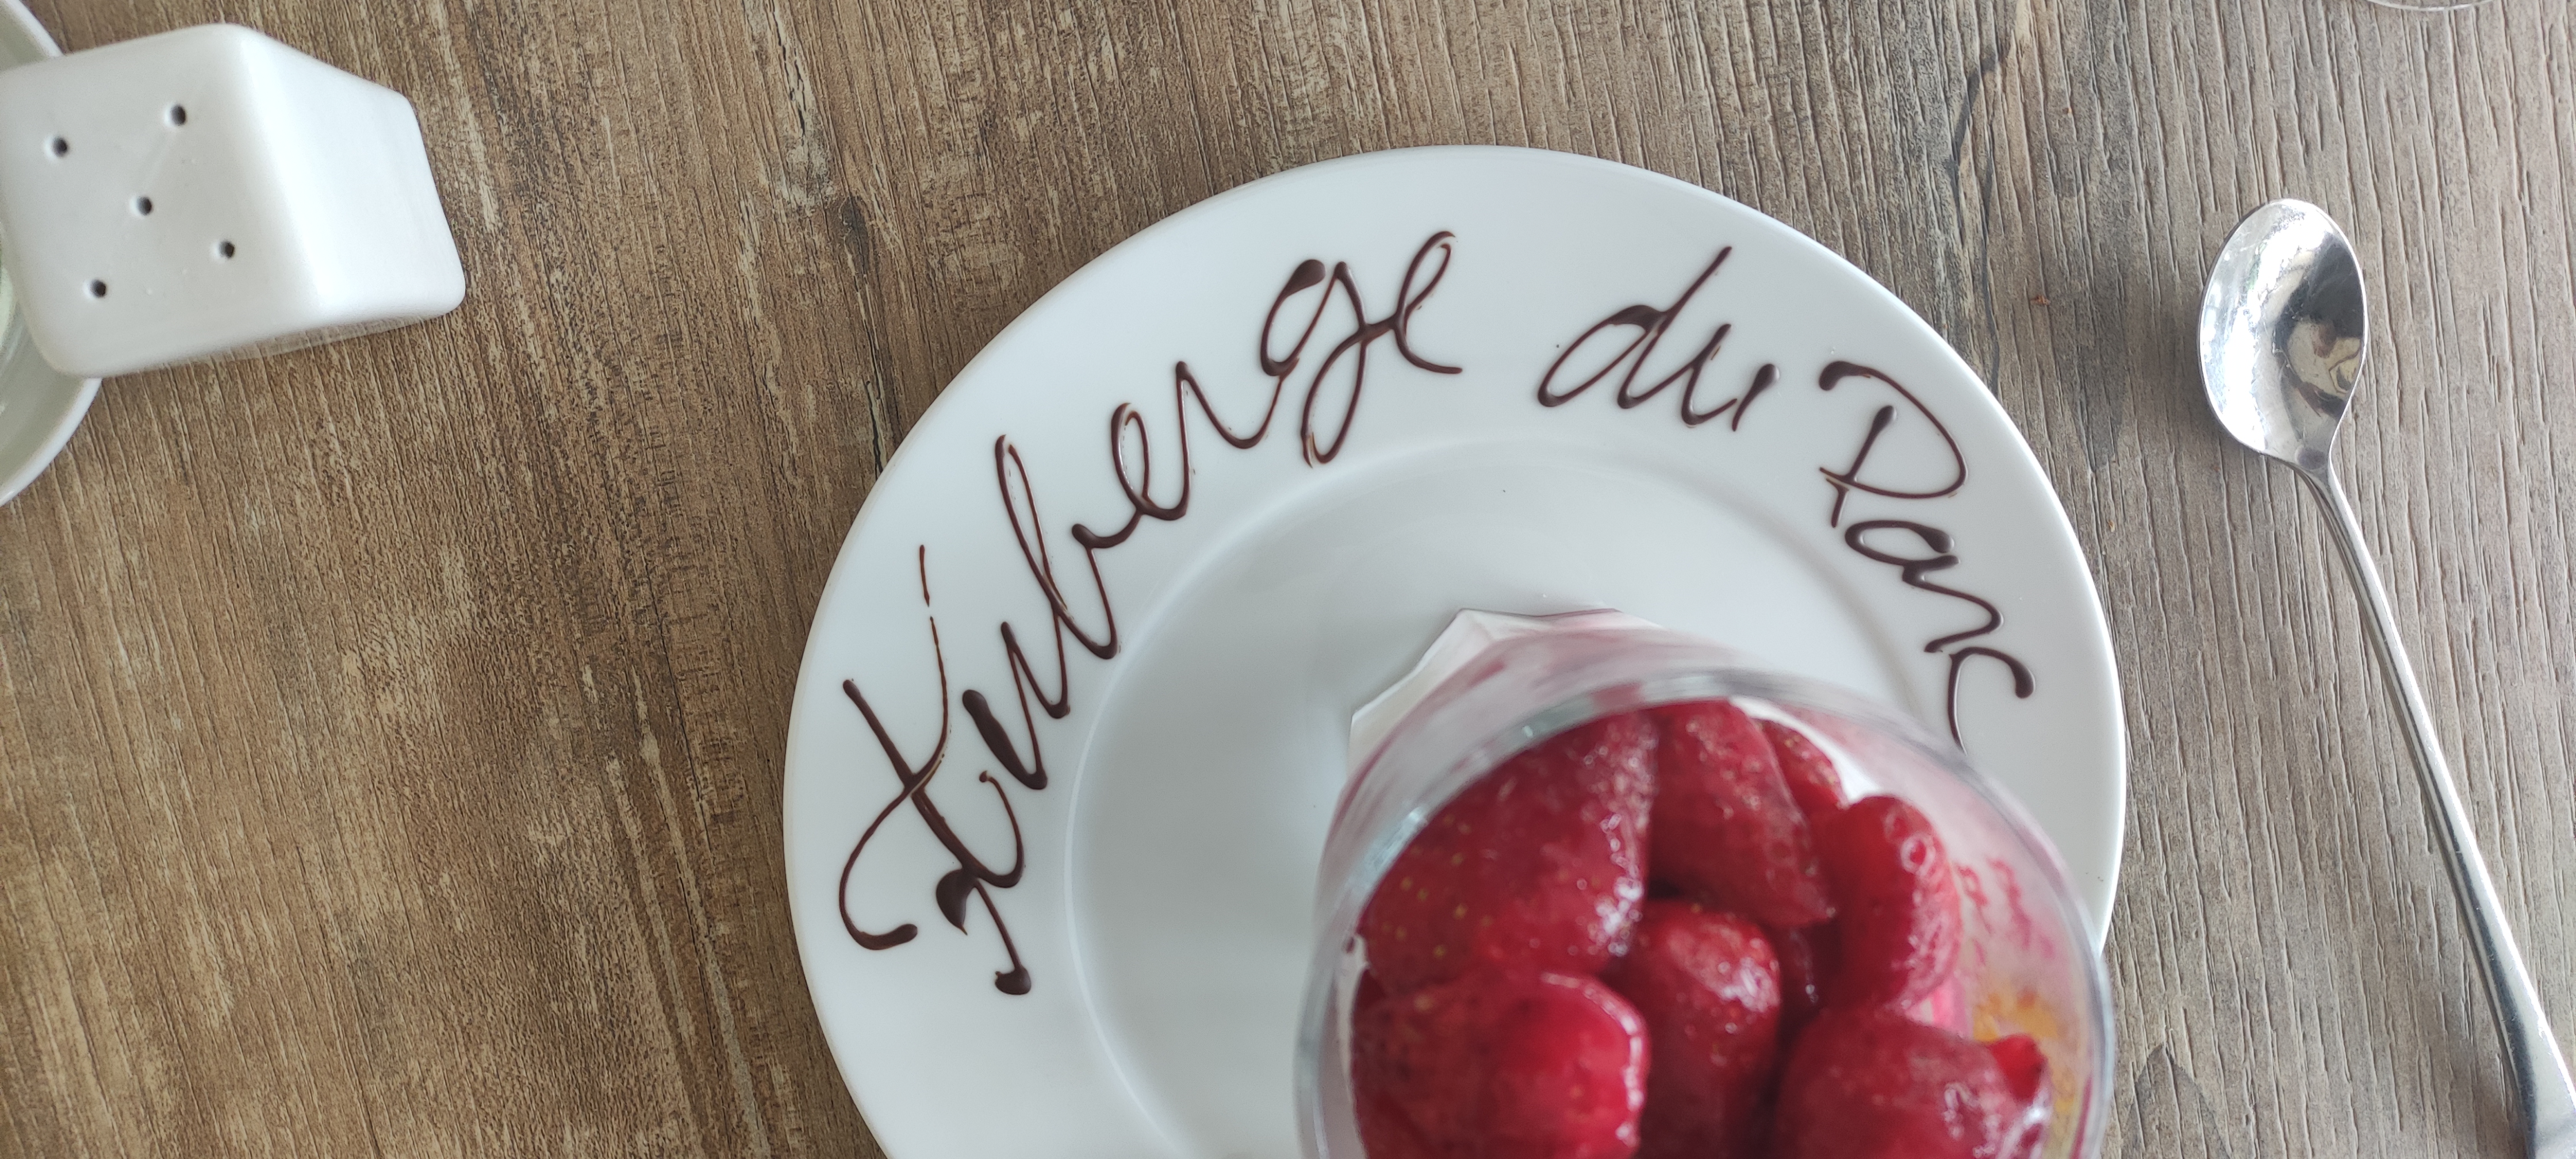 Auberge du Parc